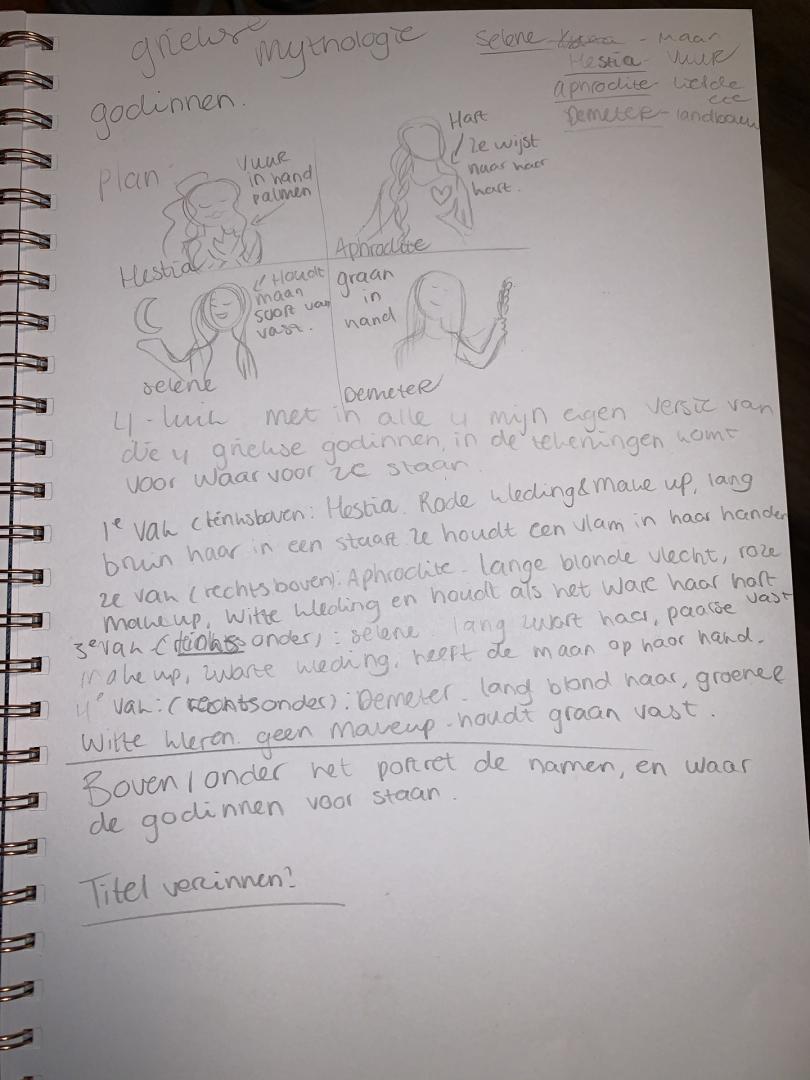 griekse mythologie
godinnen.
Selene - Maan
Hestia - Vuur
Aphrodite - liefde
Demeter - landbouw
Plan
Vuur
in hand
palmen
Hestia
Hart
ze wijst
naar haar
hart.
Aphrodite
Houdt
maan
soort van
vast.
Selene
graan
in
hand
Demeter
4-luik met in alle 4 mijn eigen versie van
die 4 griekse godinnen, in de tekeningen komt
voor waar voor ze staan.
1e vak (linksboven: Hestia. Rode kleding & make up, lang
bruin haar in een staart ze houdt een vlam in haar handen
2e vak (rechtsboven): Aphrodite - lange blonde vlecht, roze
makeup, witte kleding en houdt als het ware haar hart vast
3e vak ( onder) : Selene. lang zwart haar, paarse
make up, zwarte kleding, heeft de maan op haar hand.
4e vak: (rechtsonder): Demeter - lang blond haar, groene
witte kleren. geen makeup - houdt graan vast.
Boven/onder het portret de namen, en waar
de godinnen voor staan.
Titel verzinnen?